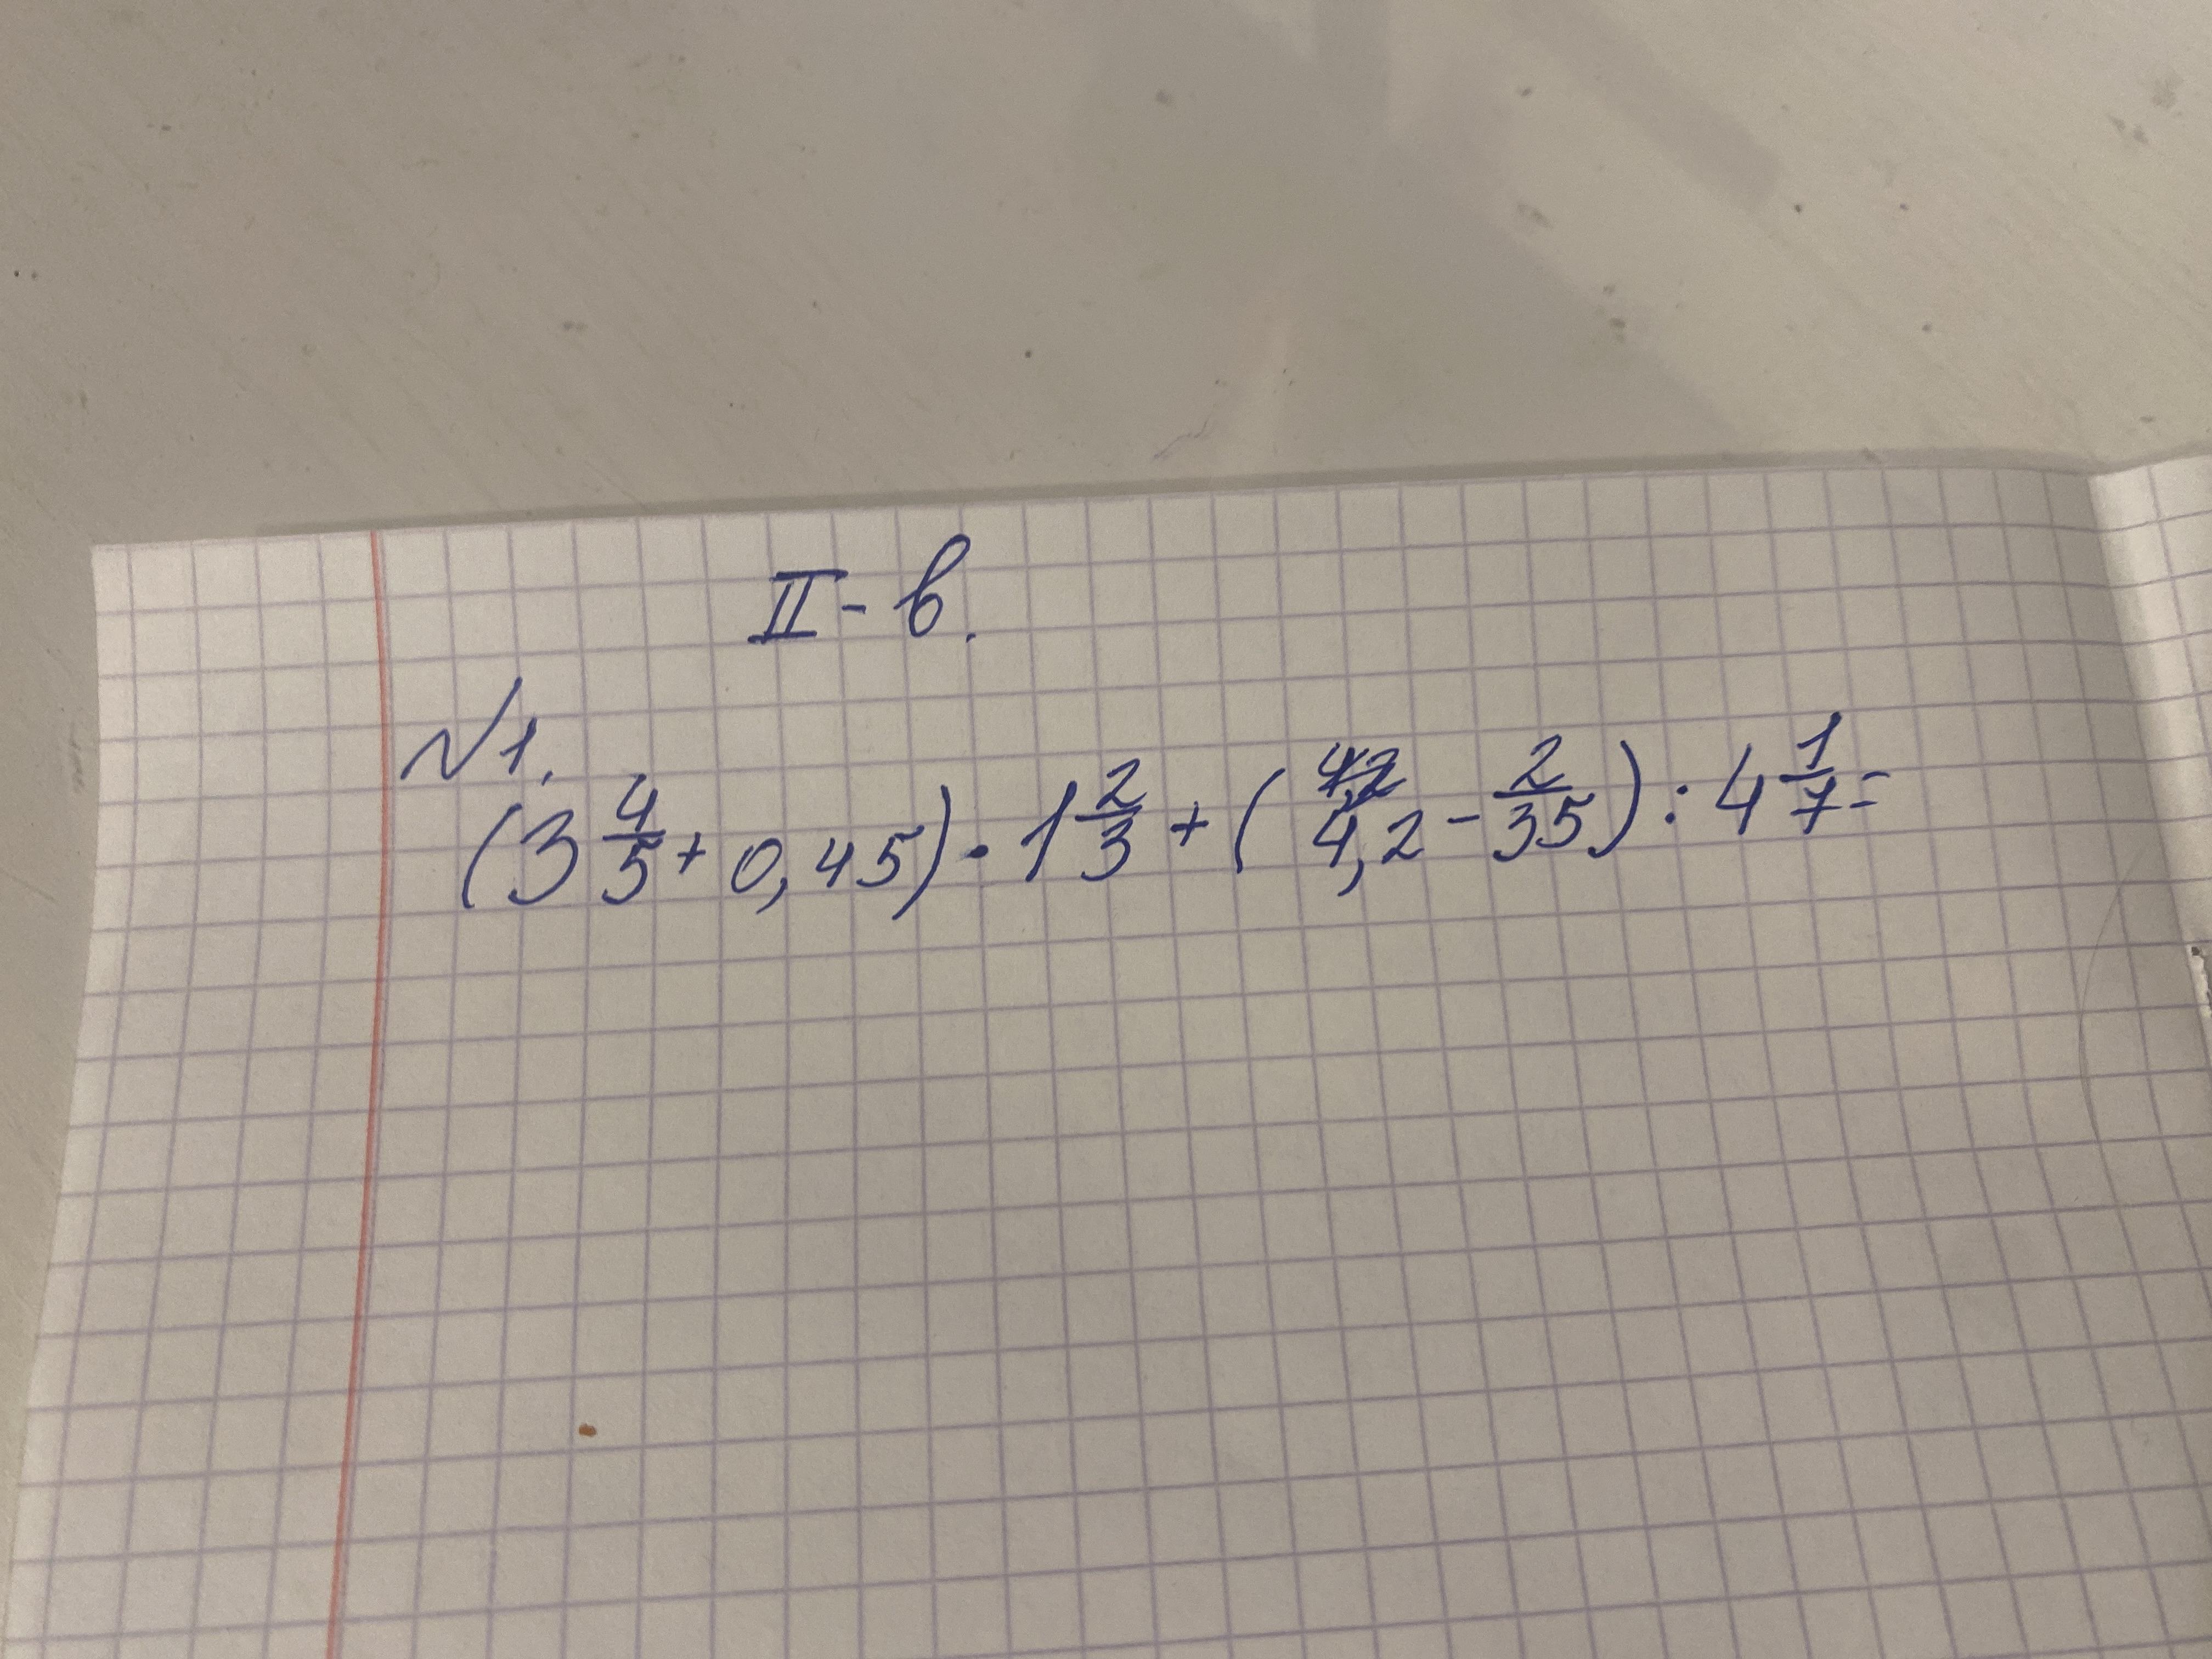 II - в.
№1.
(3 4/5 + 0,45) · 1 2/3 + (4,2 - 2/35) : 4 1/7 =